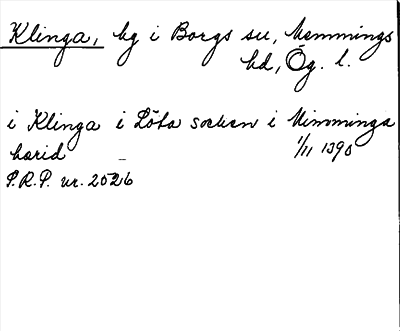 Klinga, by i Borgs sn, Memmings
hd, Ög. l.
i Klinga i Löta socken i Mimminga
harid 1/11 1390
P.R.P. nr. 2526